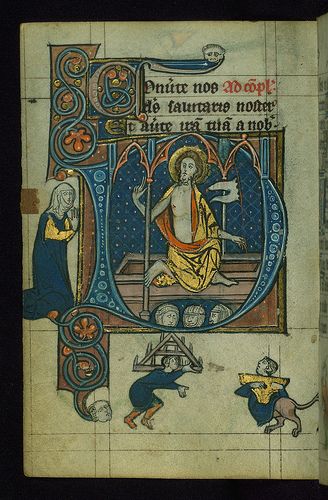 Conũte nos Ad cõpl'.
ds salutaris noster
Et aũte irã tuã a nob'.
D